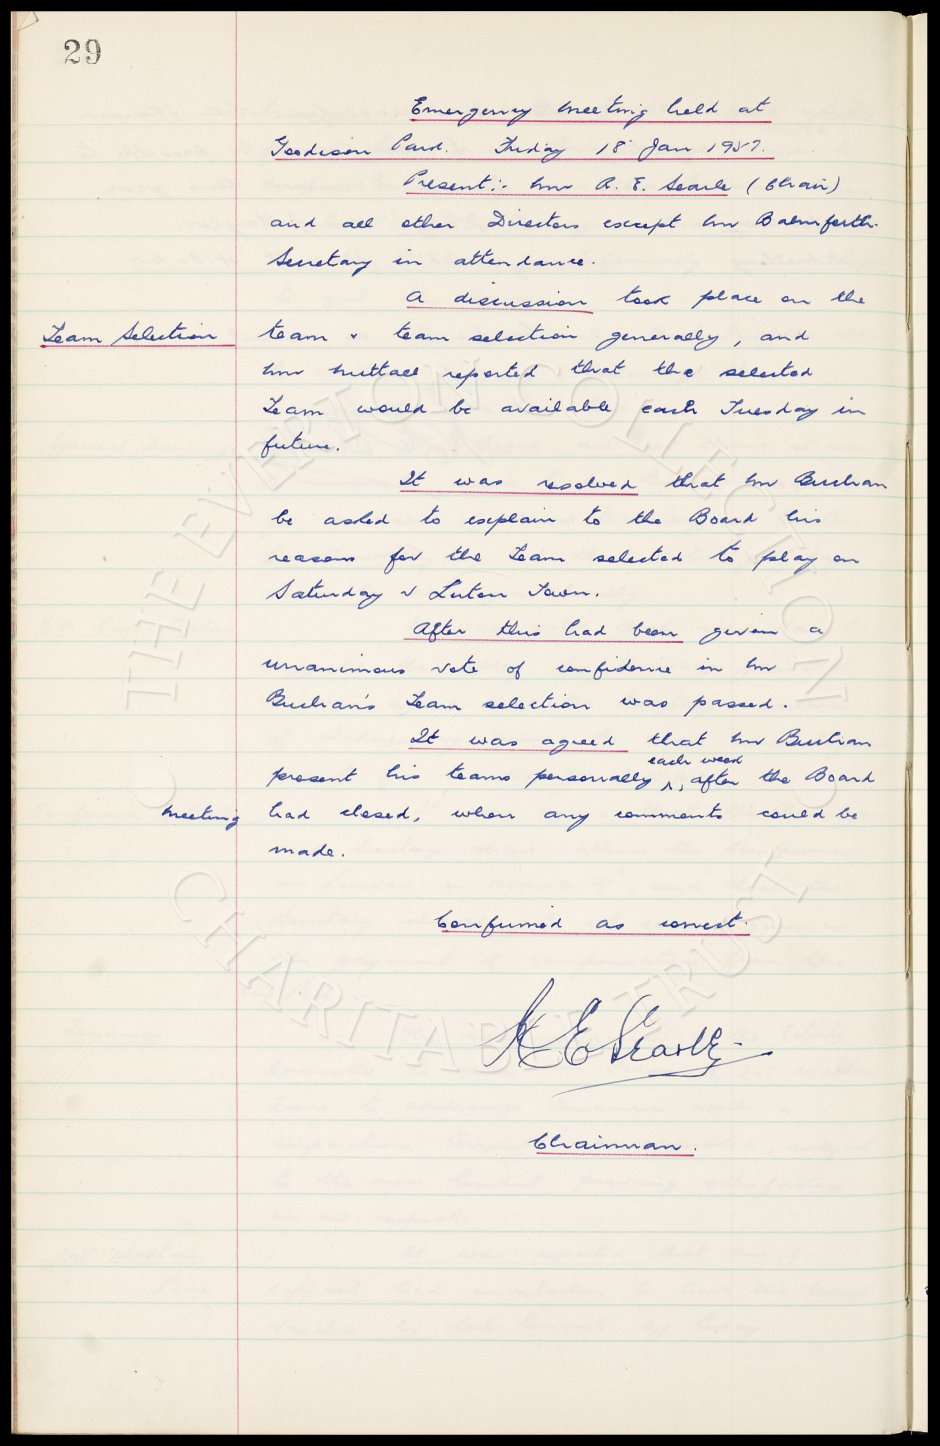 29
Emergency Meeting held at
Goodison Park. Friday 18 Jan 1957.
Present:- Mr R. E. Searle (Chair)
and all other Directors except Mr Balmforth.
Secretary in attendance.
A discussion took place on the
Team Selection team & team selection generally, and
Mr Nuttall reported that the selected
Team would be available each Tuesday in
future.
It was resolved that Mr Buchan
be asked to explain to the Board his
reasons for the Team selected to play on
Saturday v Luton Town.
After this had been given a
unanimous vote of confidence in Mr
Buchan's Team selection was passed.
It was agreed that Mr Buchan
each week
present his teams personally, after the Board
Meeting had closed, when any comments could be
made.
Confirmed as correct.
R E Searle
Chairman.
THE EVERTON COLLECTION
CHARITABLE TRUST